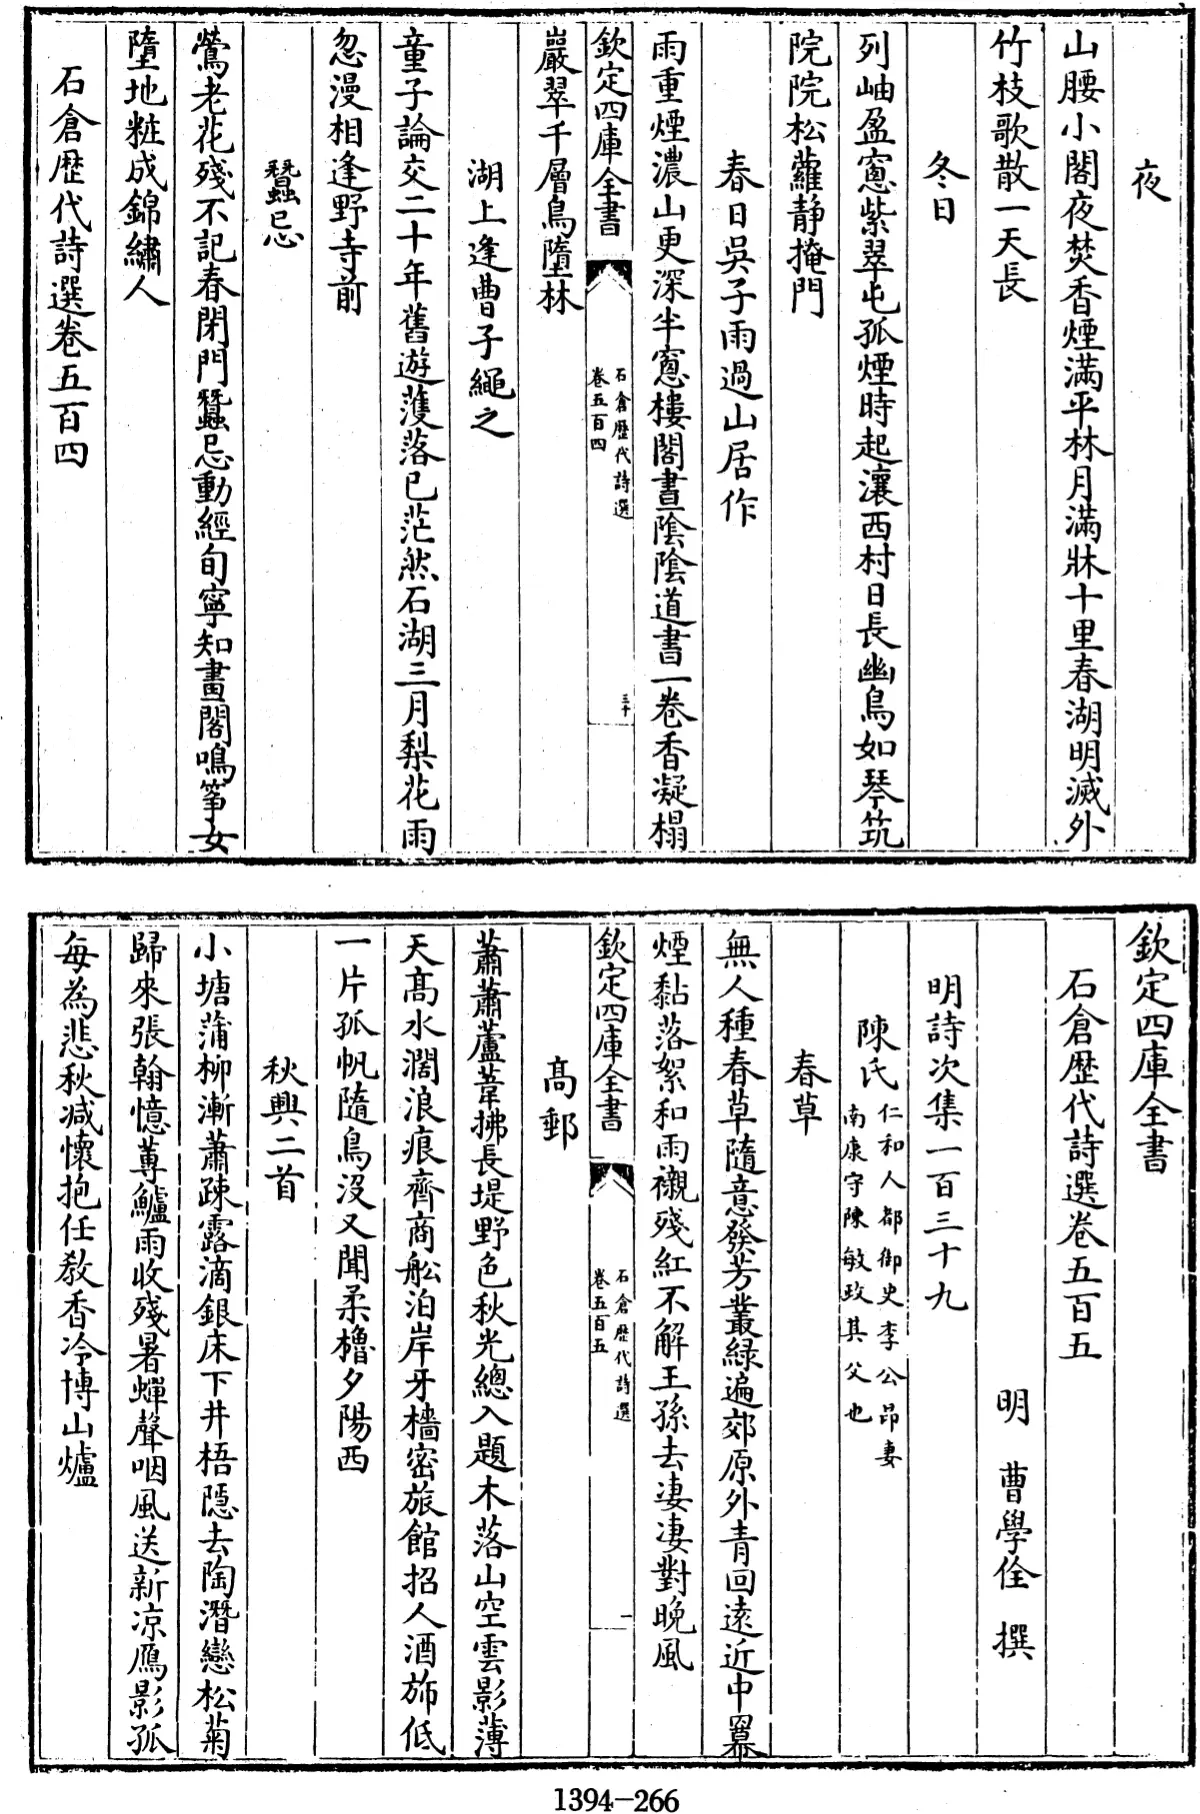 夜
山腰小閣夜焚香煙滿平林月滿牀十里春湖明滅外
竹枝歌散一天長
冬日
列岫盈窓紫翠屯孤煙時起瀼西村日長幽鳥如琴筑
院院松蘿静掩門
春日吳子雨過山居作
雨重煙濃山更深半窓樓閣晝陰陰道書一卷香凝榻
欽定四庫全書
石倉歷代詩選
卷五百四
三十
巖翠千層鳥墮林
湖上逢曹子繩之
童子論交二十年舊遊濩落已茫然石湖三月梨花雨
忽漫相逢野寺前
蠶忌
鶯老花殘不記春閉門蠶忌動經旬寧知畫閣鳴筝女
墮地粧成錦繡人
石倉歷代詩選卷五百四
欽定四庫全書
石倉歷代詩選卷五百五
明 曹學佺 撰
明詩次集一百三十九
陳氏 仁和人都御史李公昂妻
南康守陳敏政其父也
春草
無人種春草隨意發芳叢緑遍郊原外青回遠近中冪
煙黏落絮和雨襯殘紅不解王孫去凄凄對晚風
欽定四庫全書
石倉歷代詩選
卷五百五
一
髙郵
蕭蕭蘆葦拂長堤野色秋光總入題木落山空雲影薄
天髙水濶浪痕齊商舩泊岸牙檣密旅館招人酒斾低
一片孤帆隨鳥没又聞柔櫓夕陽西
秋興二首
小塘蒲柳漸蕭疎露滴銀床下井梧隱去陶潛戀松菊
歸來張翰憶蓴鱸雨收殘暑蟬聲咽風送新凉鴈影孤
每為悲秋减懷抱任教香冷博山爐
1394-266